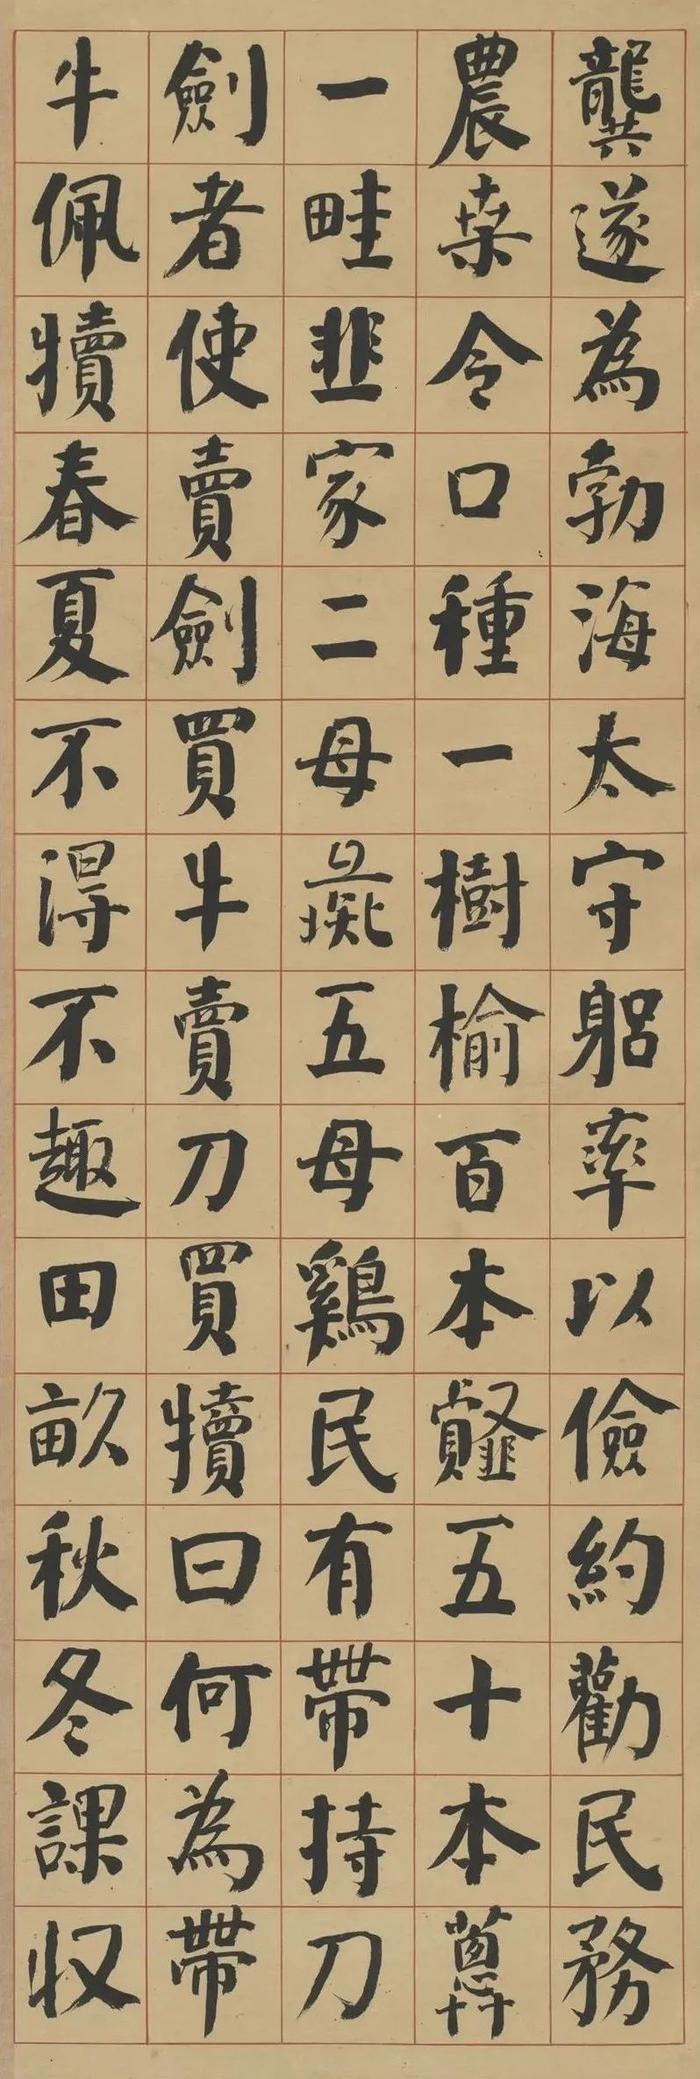 龔遂為勃海太守躳率以儉約勸民務
農桒令口種一樹榆百本䪥五十本蔥
一畦韭家二母彘五母鷄民有帶持刀
劍者使賣劍買牛賣刀買犢曰何為帶
牛佩犢春夏不淂不趣田畝秋冬課収